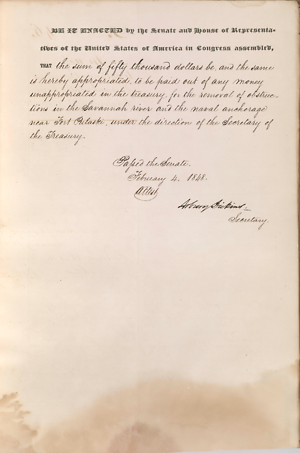 BE IT ENACTED by the Senate and House of Representa-
tives of the United States of America in Congress assembled,
THAT the sum of fifty thousand dollars be, and the same
is hereby appropriated, to be paid out of any money
unappropriated in the treasury, for the removal of obstruc-
tions in the Savannah river and the naval anchorage
near Fort Pulaski, under the direction of the Secretary of
the Treasury.
Passed the Senate.
February 4. 1848.
Attest
Asbury Dickins
Secretary.